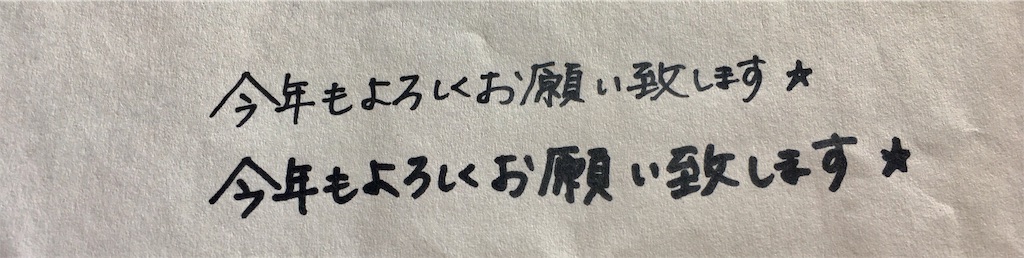 今年もよろしくお願い致します★
今年もよろしくお願い致します★